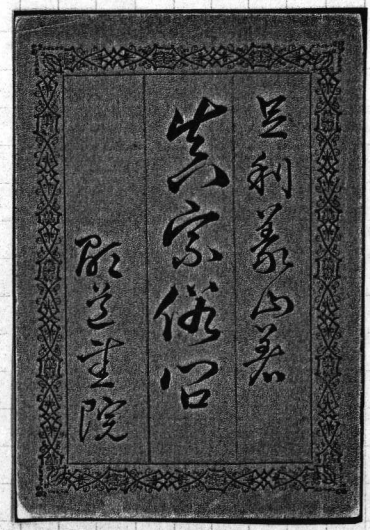 足利義山著
真宗俗問
顕道書院